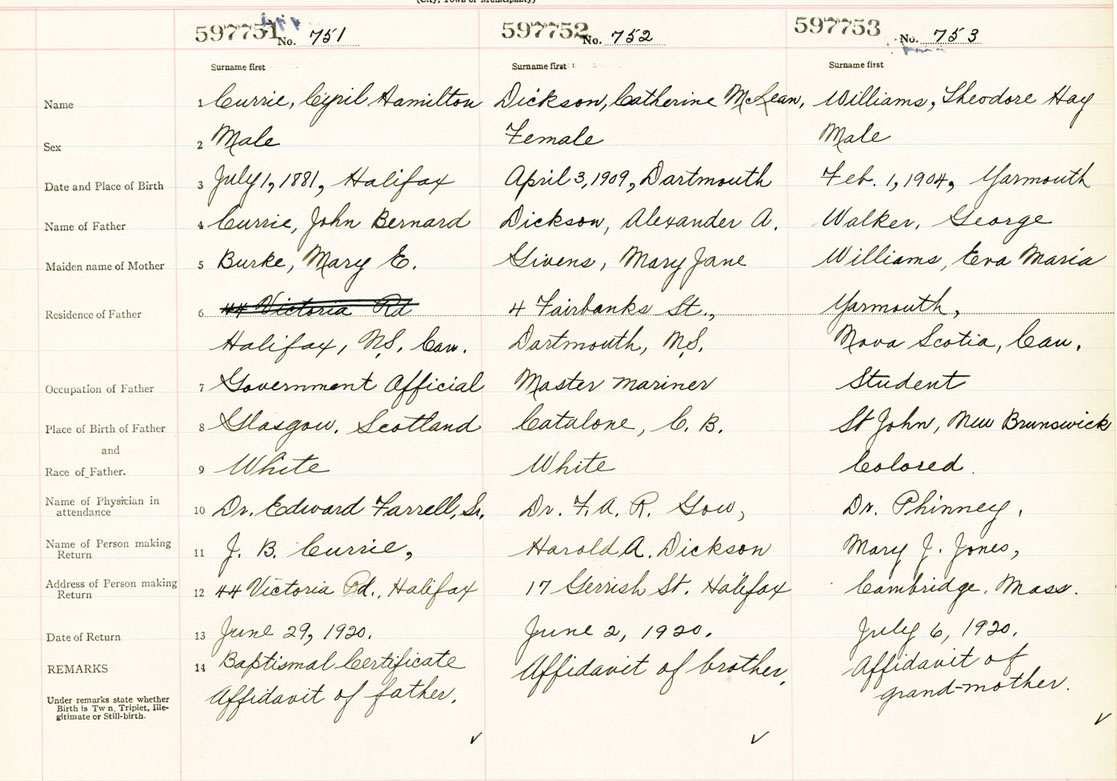 (City, Town or Municipality)
597751 No. 751 597752 No. 752 597753 No. 753
Surname first Surname first Surname first
Name 1 Currie, Cyril Hamilton Dickson, Catherine McLean, Williams, Theodore Hay
Sex 2 Male Female Male
Date and Place of Birth 3 July 1, 1881, Halifax April 3, 1909, Dartmouth Feb. 1, 1904, Yarmouth
Name of Father 4 Currie, John Bernard Dickson, Alexander A. Walker, George
Maiden name of Mother 5 Burke, Mary E. Givens, Mary Jane Williams, Eva Maria
Residence of Father 6 44 Victoria Rd 4 Fairbanks St., Yarmouth,
Halifax, N.S. Can. Dartmouth, N.S. Nova Scotia, Can.
Occupation of Father 7 Government Official Master mariner Student
Place of Birth of Father 8 Glasgow, Scotland Catalone, C. B. St John, New Brunswick
and
Race of Father. 9 White White Colored.
Name of Physician in attendance 10 Dr. Edward Farrell, Sr. Dr. F. A. R. Gow, Dr. Phinney,
Name of Person making Return 11 J. B. Currie, Harold A. Dickson Mary J. Jones,
Address of Person making Return 12 44 Victoria Rd., Halifax 17 Gerrish St. Halifax Cambridge, Mass.
Date of Return 13 June 29, 1920. June 2, 1920. July 6, 1920.
REMARKS 14 Baptismal Certificate Affidavit of brother. Affidavit of
Under remarks state whether Birth is Twin, Triplet, Ille-gitimate or Still-birth. Affidavit of father. grand-mother.